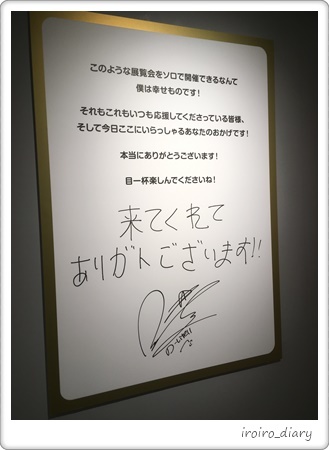 このような展覧会をソロで開催できるなんて
僕は幸せものです！
それもこれもいつも応援してくださっている皆様、
そして今日ここにいらっしゃるあなたのおかげです！
本当にありがとうございます！
目一杯楽しんでくださいね！
来てくれて
ありガトございます!!
iroiro_diary